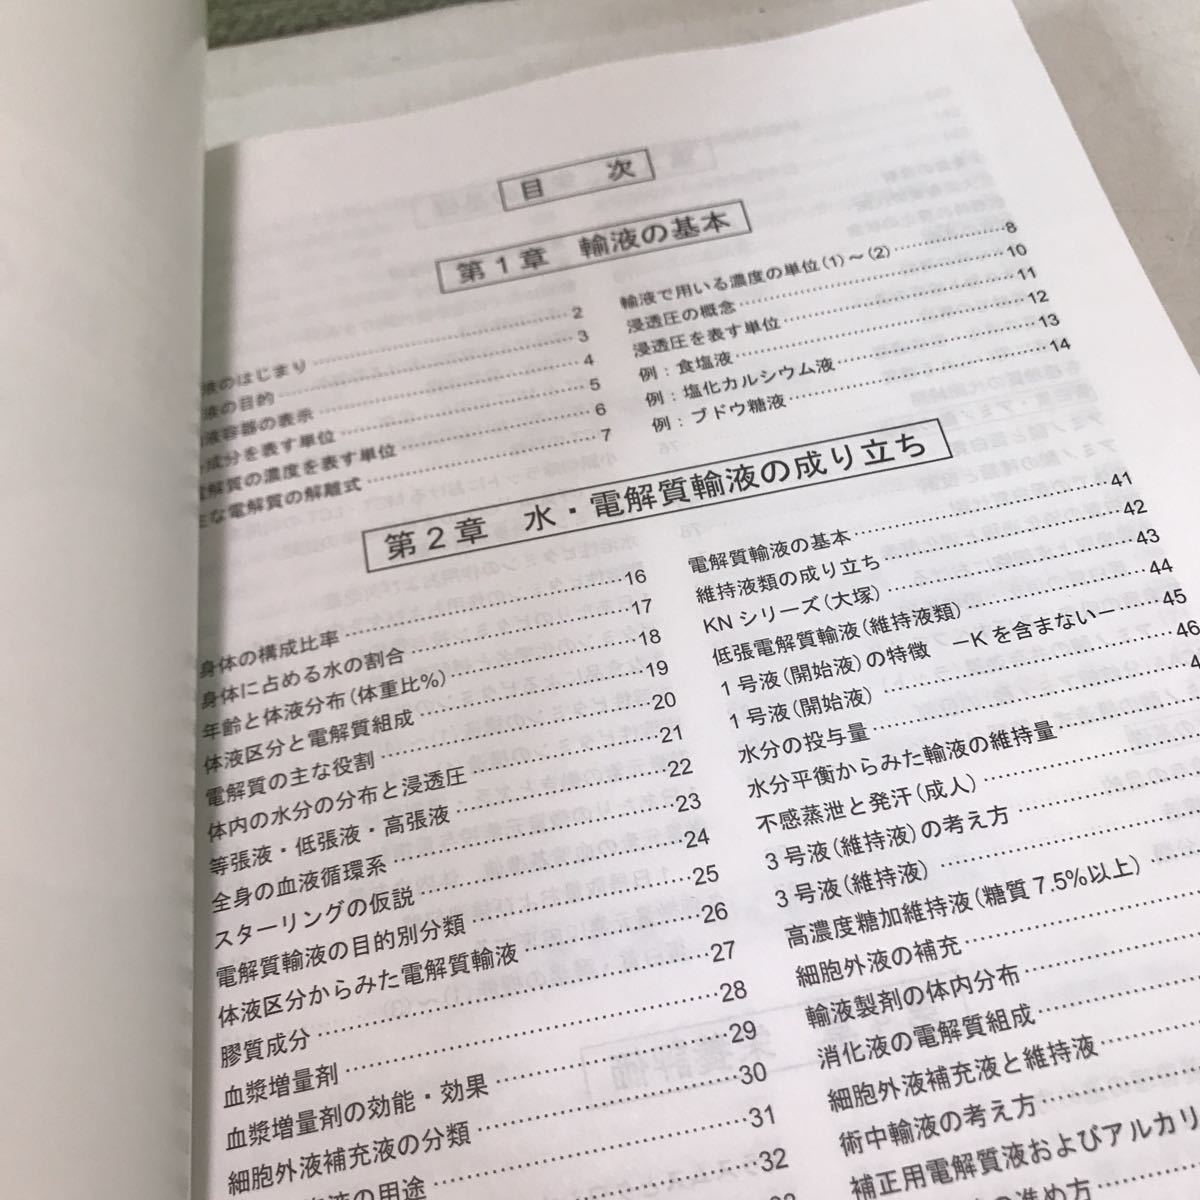 目　次
第1章　輸液の基本
液のはじまり……2
液の目的……3
液容器の表示……4
成分を表す単位……5
電解質の濃度を表す単位……6
主な電解質の解離式……7
輸液で用いる濃度の単位(1)～(2)……8
浸透圧の概念……10
浸透圧を表す単位……11
例：食塩液……12
例：塩化カルシウム液……13
例：ブドウ糖液……14
第2章　水・電解質輸液の成り立ち
身体の構成比率……16
身体に占める水の割合……17
年齢と体液分布(体重比%)……18
体液区分と電解質組成……19
電解質の主な役割……20
体内の水分の分布と浸透圧……21
等張液・低張液・高張液……22
全身の血液循環系……23
スターリングの仮説……24
電解質輸液の目的別分類……25
体液区分からみた電解質輸液……26
膠質成分……27
血漿増量剤……28
血漿増量剤の効能・効果……29
細胞外液補充液の分類……30
液の用途……31
32
電解質輸液の基本……41
維持液類の成り立ち……42
KNシリーズ(大塚)……43
低張電解質輸液(維持液類)……44
1号液(開始液)の特徴　－Kを含まない－……45
1号液(開始液)……46
水分の投与量……4
水分平衡からみた輸液の維持量……
不感蒸泄と発汗(成人)……
3号液(維持液)の考え方……
3号液(維持液)……
高濃度糖加維持液(糖質7.5%以上)……
細胞外液の補充……
輸液製剤の体内分布……
消化液の電解質組成……
細胞外液補充液と維持液……
術中輸液の考え方……
補正用電解質液およびアルカリ
の進め方……